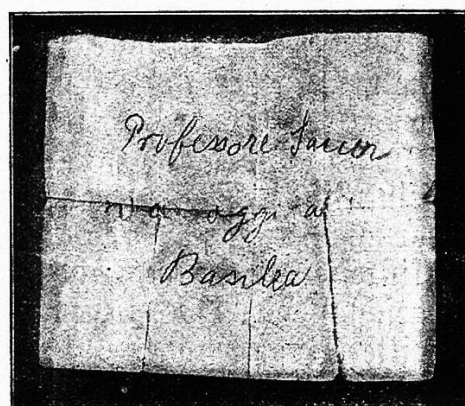 Professore
va oggi a
Basilea